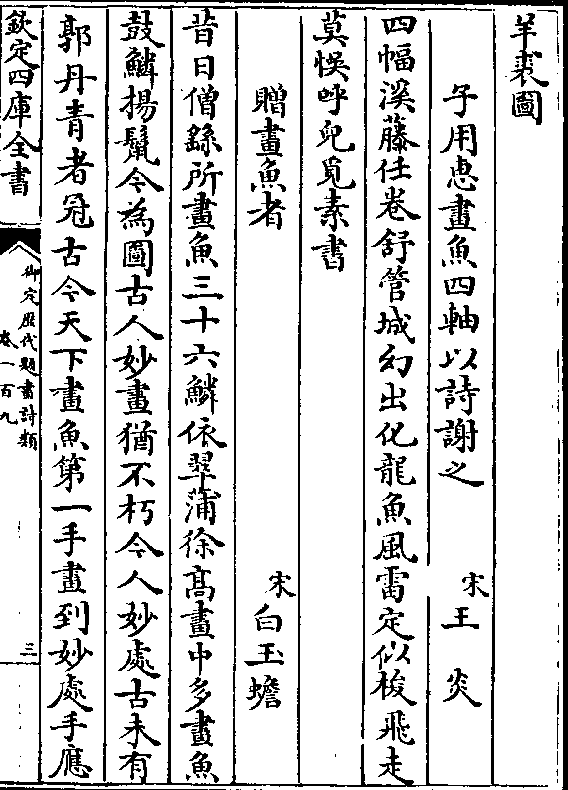 羊裘圖
子用惠畫魚四軸以詩謝之 宋王炎
四幅溪藤任卷舒管城幻出化龍魚風雷定似梭飛走
莫悞呼兒覓素書
贈畫魚者 宋白玉蟾
昔日僧繇所畫魚三十六鱗依翠蒲徐髙畫中多畫魚
鼓鱗揚鬛今為圖古人妙畫猶不朽今人妙處古未有
郭丹青者冠古今天下畫魚第一手畫到妙處手應
欽定四庫全書
御定歷代題畫詩類
卷一百九
三